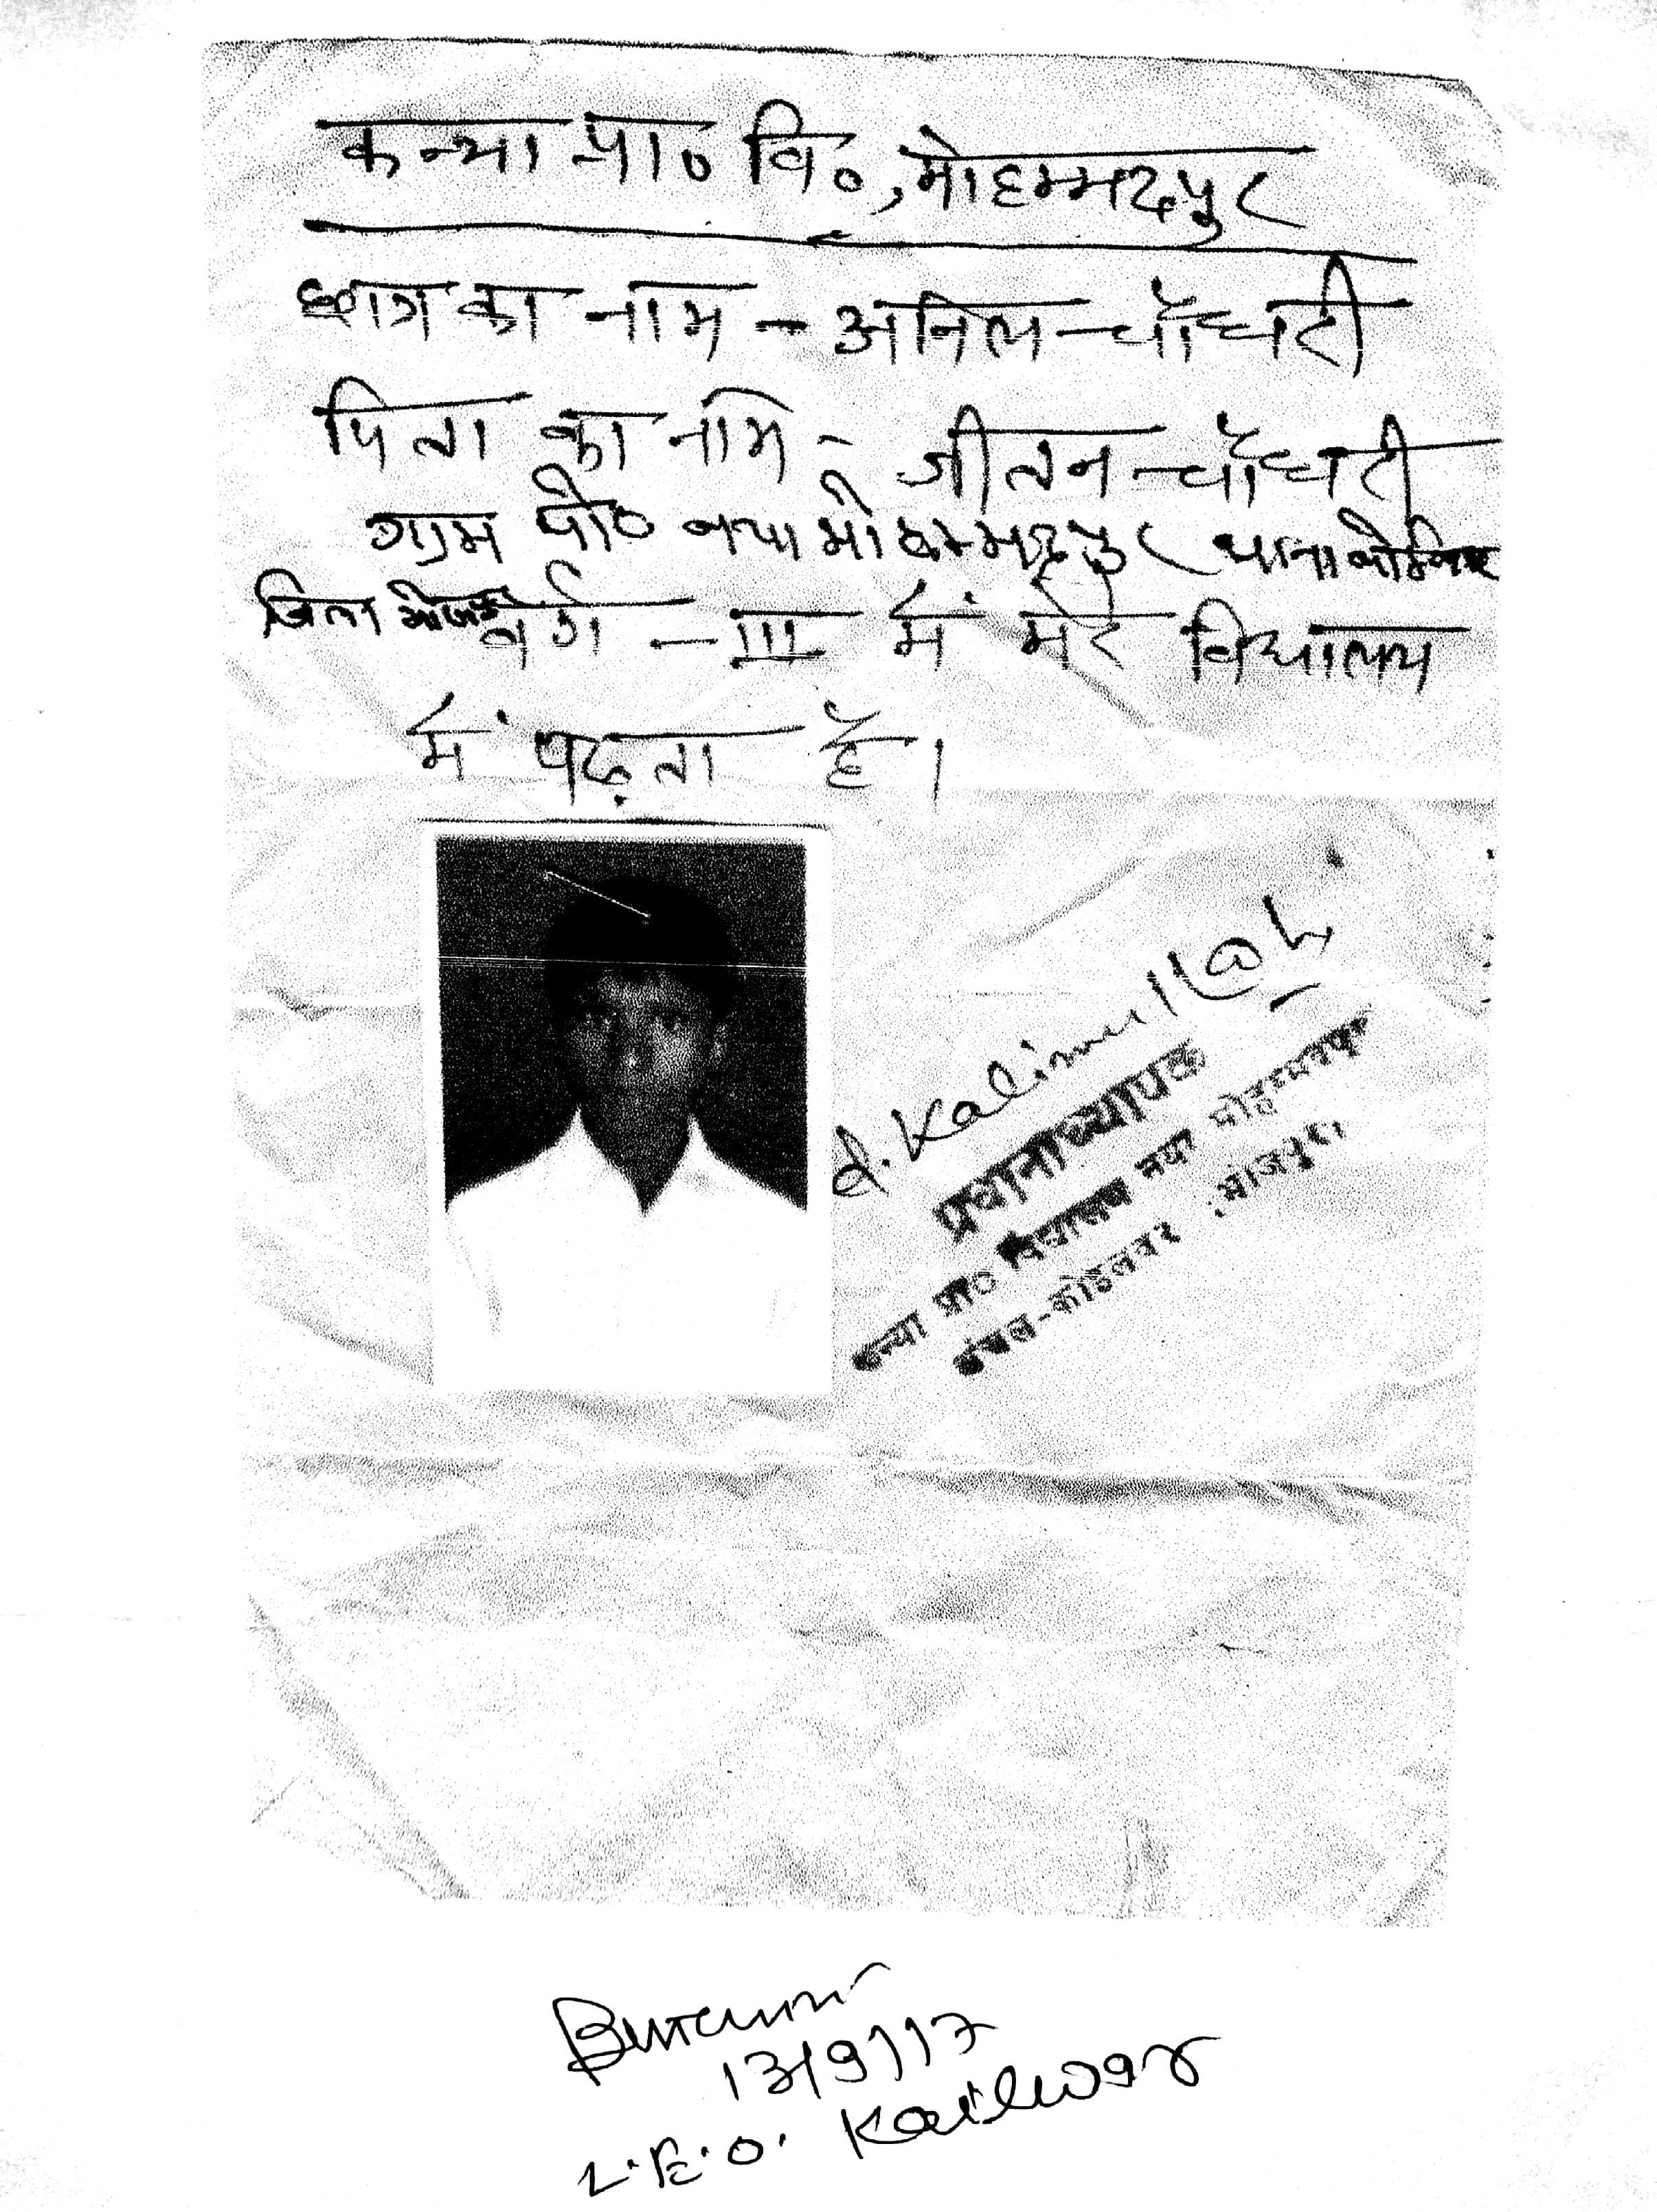 कन्या प्रा० वि०, मोहम्मदपुर
छात्र का नाम - अनिल चौधरी
पिता का नाम - जीतन चौधरी
ग्राम पो० नया मोहम्मदपुर थाना
जिला
वर्ग - III में मेरे विद्यालय
में पढ़ता है।
Kalimullah
प्रधानाध्यापक
कन्या प्रा० विद्यालय नया मोहम्मदपुर
अंचल-कोईलवर, भोजपुर
13/9/17
L.E.O. Koilwar